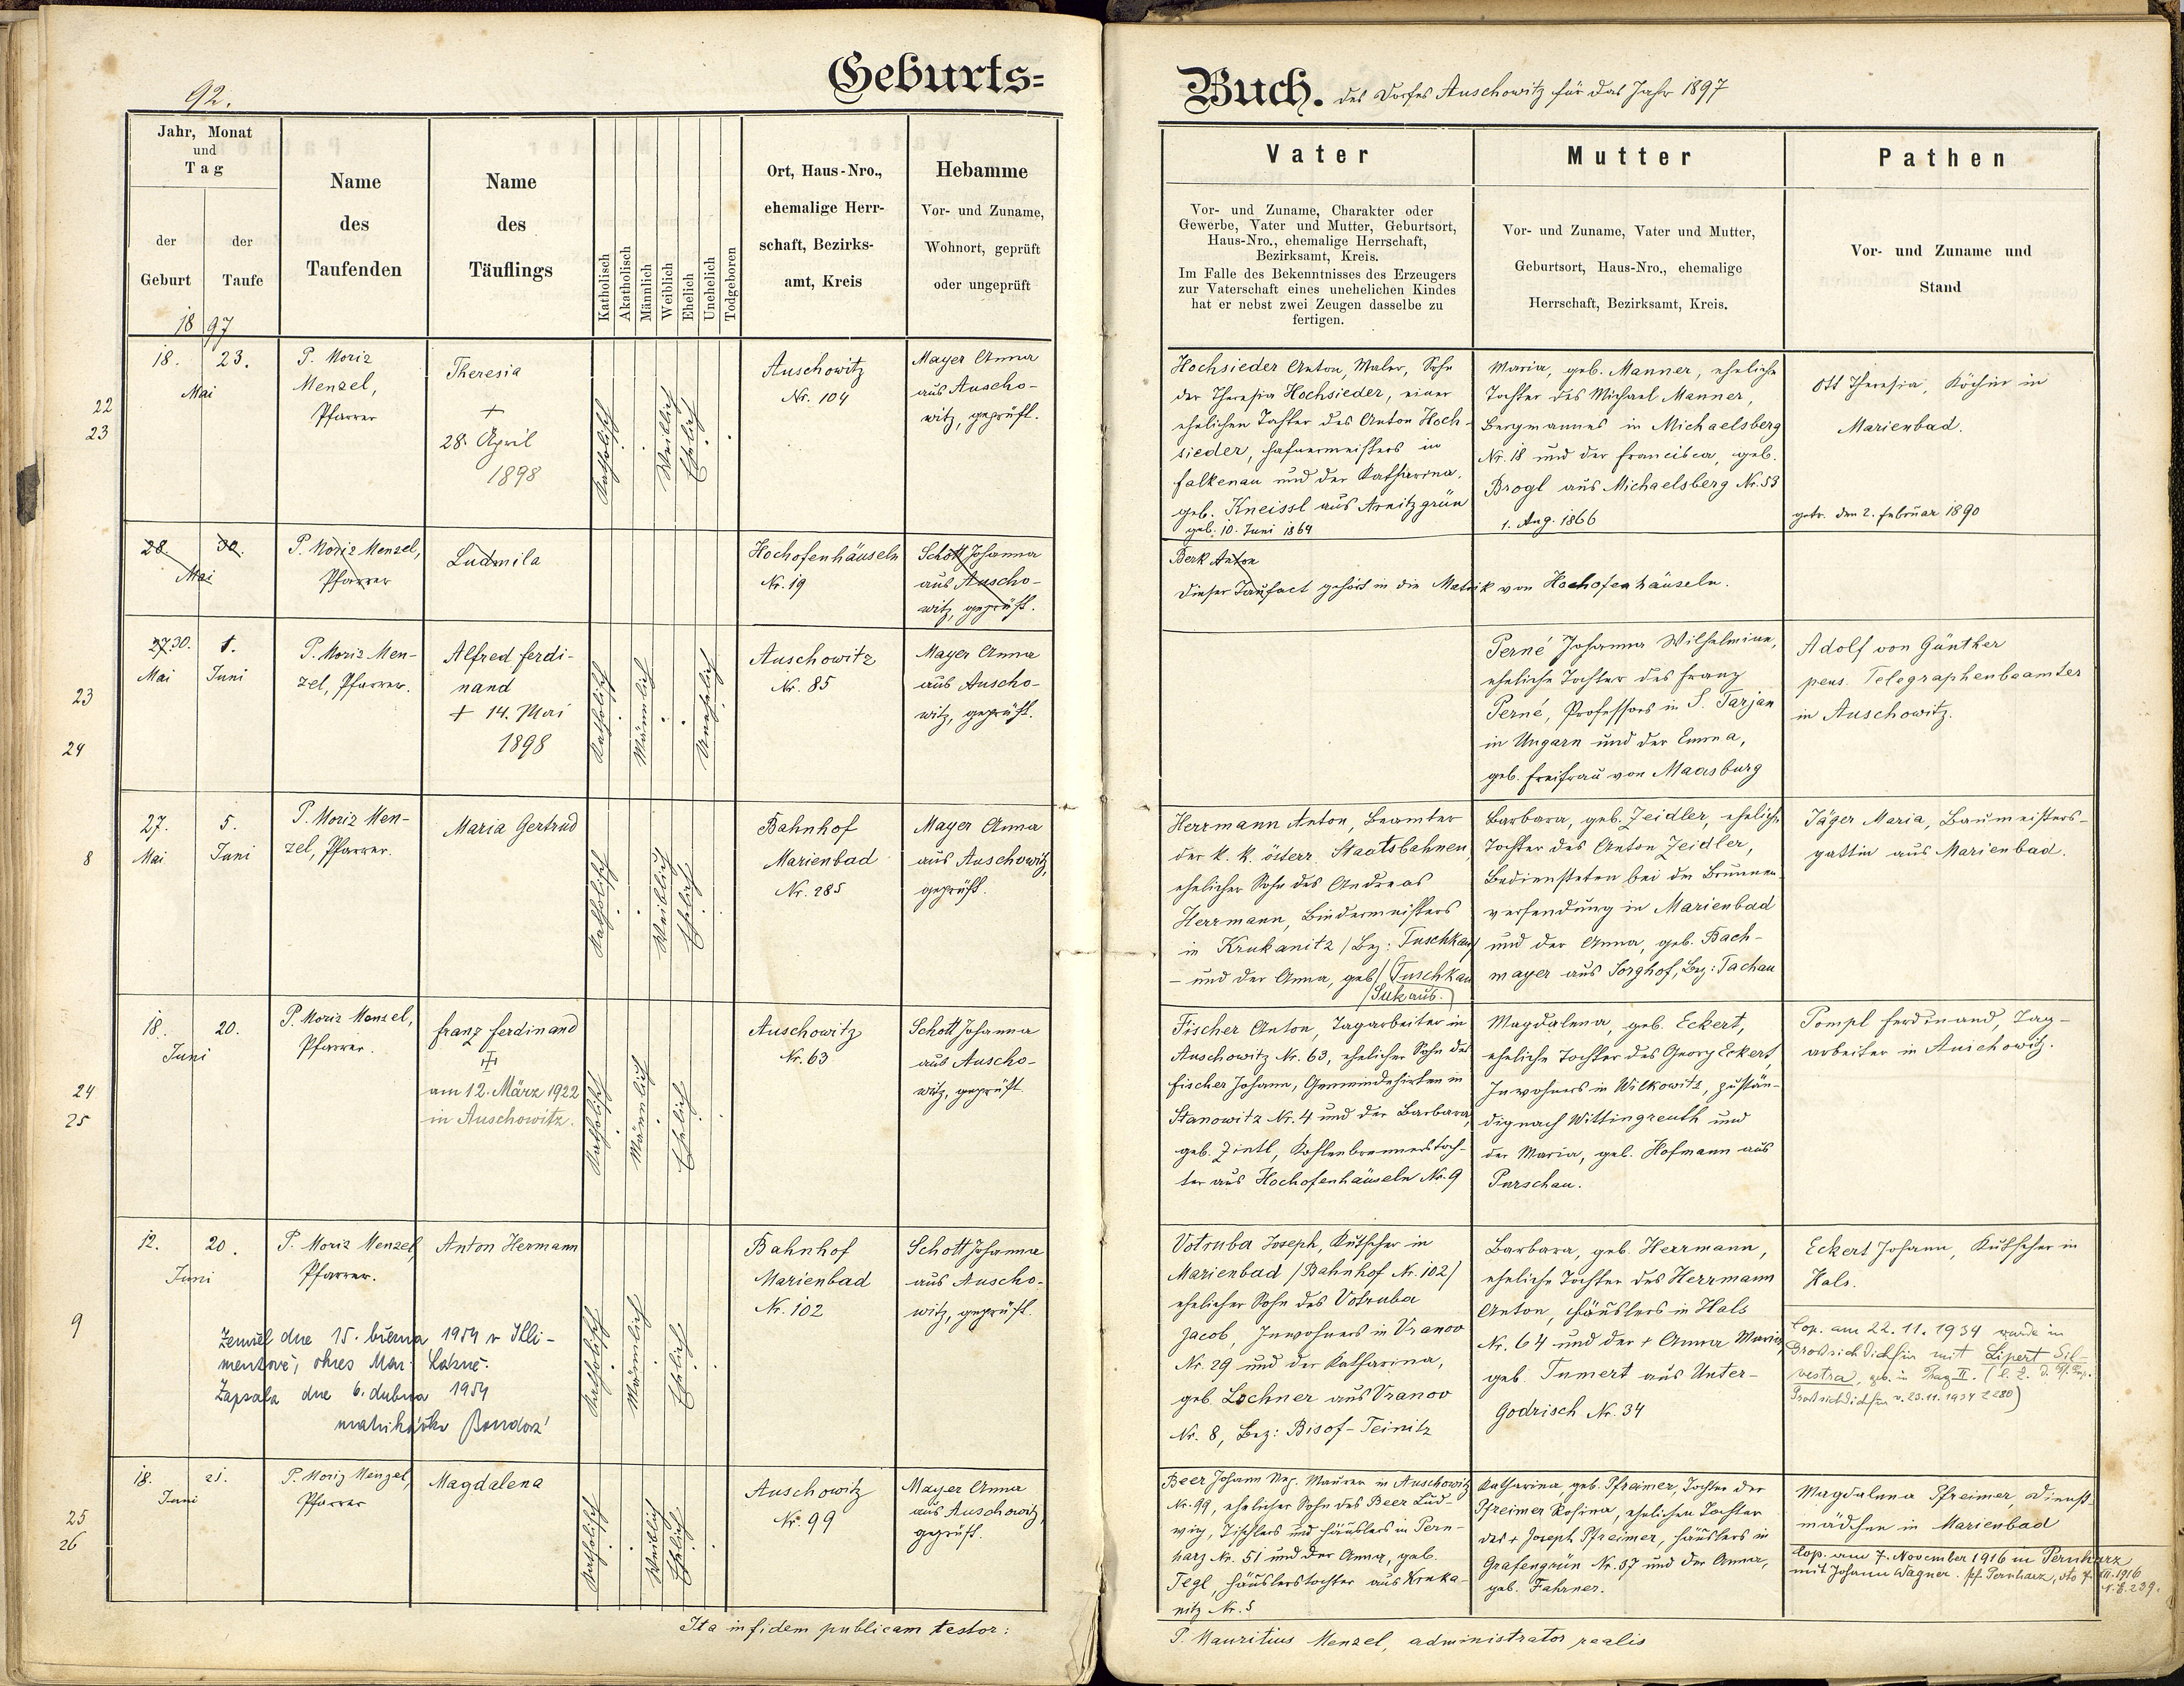 92.
Geburts=
Jahr, Monat
und
Tag
der
Geburt
der
Taufe
Name
des
Taufenden
Name
des
Täuflings
Katholisch
Akatholisch
Männlich
Weiblich
Ehelich
Unehelich
Todgeboren
Ort, Haus-Nro.,
ehemalige Herr-
schaft, Bezirks-
amt, Kreis
Hebamme
Vor- und Zuname,
Wohnort, geprüft
oder ungeprüft
1897
22
23
18. 23.
Mai
P. Moriz
Menzel,
Pfarrer
Theresia
+
28. April
1898
Katholisch
Weiblich
Ehelich
Auschowitz
Nr. 104
Mayer Anna
aus Auscho-
witz, geprüft.
28. 30.
Mai
P. Moriz Menzel,
Pfarrer
Ludmila
Hochofenhäuseln
Nr. 19
Schott Johanna
aus Auscho-
witz, geprüft.
23
24
27. 30. 1.
Mai Juni
P. Moriz Men-
zel, Pfarrer.
Alfred Ferdi-
nand
+ 14. Mai
1898
Katholisch
Männlich
Unehelich
Auschowitz
Nr. 85
Mayer Anna
aus Auscho-
witz, geprüft.
8
27. 5.
Mai Juni
P. Moriz Men-
zel, Pfarrer.
Maria Gertrud
Katholisch
Weiblich
Ehelich
Bahnhof
Marienbad
Nr. 285
Mayer Anna
aus Auschowitz,
geprüft.
24
25
18. 20.
Juni
P. Moriz Menzel,
Pfarrer.
Franz Ferdinand
+
am 12. März 1922
in Auschowitz.
Katholisch
Männlich
Ehelich
Auschowitz
Nr. 63
Schott Johanna
aus Auscho-
witz, geprüft
9
12. 20.
Juni
P. Moriz Menzel
Pfarrer.
Anton Hermann
Katholisch
Männlich
Ehelich
Bahnhof
Marienbad
Nr. 102
Schott Johanna
aus Auscho-
witz, geprüft.
Zemřel dne 15. března 1954 v Kli-
mentově, okres Mar. Lázně.
Zapsala dne 6. dubna 1954
matrikářka
25
26
18. 21.
Juni
P. Moriz Menzel,
Pfarrer
Magdalena
Katholisch
Weiblich
Ehelich
Auschowitz
Nr. 99
Mayer Anna
aus Auschowitz,
geprüft.
Ita in fidem publicam testor:
Buch. des Dorfes Auschowitz für das Jahr 1897
Vater
Vor- und Zuname, Charakter oder
Gewerbe, Vater und Mutter, Geburtsort,
Haus-Nro., ehemalige Herrschaft,
Bezirksamt, Kreis.
Im Falle des Bekenntnisses des Erzeugers
zur Vaterschaft eines unehelichen Kindes
hat er nebst zwei Zeugen dasselbe zu
fertigen.
Mutter
Vor- und Zuname, Vater und Mutter,
Geburtsort, Haus-Nro., ehemalige
Herrschaft, Bezirksamt, Kreis.
Pathen
Vor- und Zuname und
Stand
Hochsieder Anton, Maler, Sohn
der Theresia Hochsieder, einer
ehelichen Tochter des Anton Hoch-
sieder, Hafnermeisters in
Falkenau und der Katharina,
geb. Kneissl aus Arnitzgrün
geb. 10. Juni 1864
Maria, geb. Manner, eheliche
Tochter des Michael Manner,
Bergmannes in Michaelsberg
Nr. 18 und der Francisca, geb.
Brogl aus Michaelsberg Nr. 53
1. Aug. 1866
Ott Theresia, Köchin in
Marienbad.
getr. den 2. Februar 1890
Berk Anton
Dieser Taufact gehört in die Matrik von Hochofenhäuseln.
Perné Johanna Wilhelmine,
eheliche Tochter des Franz
Perné, Professors in S. Tarjan
in Ungarn und der Emma,
geb. Freifrau von Maasburg
Adolf von Günther
pens. Telegraphenbeamter
in Auschowitz.
Herrmann Anton, Beamter
der k. k. österr. Staatsbahnen,
ehelicher Sohn des Andreas
Herrmann, Bindermeisters
in Krukanitz / Bez: Tuschkau /
- und der Anna, geb. / Tuschkau
/ Suk aus.
Barbara, geb. Zeidler, eheliche
Tochter des Anton Zeidler,
Bediensteten bei der Brunnen-
versendung in Marienbad
und der Anna, geb. Bach-
mayer aus Sorghof, Bez: Tachau
Jäger Maria, Baumeisters-
gattin aus Marienbad.
Fischer Anton, Tagarbeiter in
Auschowitz Nr. 63, ehelicher Sohn des
Fischer Johann, Gemeindehirten in
Stanowitz Nr. 4 und der Barbara,
geb. Zintl, Kohlenbrennerstoch-
ter aus Hochofenhäuseln Nr. 9
Magdalena, geb. Eckert,
eheliche Tochter des Georg Eckert,
Inwohners in Wilkowitz, zustän-
dig nach Wittingreuth und
der Maria, geb. Hofmann aus
Purschau.
Pompl Ferdinand, Tag-
arbeiter in Auschowitz.
Votruba Joseph, Kutscher in
Marienbad / Bahnhof Nr. 102 /
ehelicher Sohn des Votruba
Jacob, Inwohners in Vranov
Nr. 29 und der Katharina,
geb. Lochner aus Vranov
Nr. 8, Bez: Bisof-Teinitz
Barbara, geb. Herrmann,
eheliche Tochter des Herrmann
Anton, Häuslers in Hals
Nr. 64 und der + Anna Maria,
geb. Tumert aus Unter-
Godrisch Nr. 34
Eckert Johann, Kutscher in
Hals.
Cop. am 22.11.1934 wurde in
Grossichdichfür mit Lipert Sil-
vestra, geb. in Prag II.
Grossichdichfür v. 23.11.1934 Z 280)
Beer Johann Nep. Maurer in Auschowitz
Nr. 99, ehelicher Sohn des Beer Lud-
wig, Tischlers und Häuslers in Pern-
harz Nr. 51 und der Anna, geb.
Tegl, Häuslerstochter aus Kruka-
nitz Nr. 5
Katharina, geb. Pfreimer, Tochter der
Pfreimer Rosina, ehelichen Tochter
des + Joseph Pfreimer, Häuslers in
Grafengrün Nr. 37 und der Anna,
geb. Fahrner.
Magdalena Pfreimer, Dienst-
mädchen in Marienbad
Cop. am 7. November 1916 in Pernharz
mit Johann Wagner. Pf. Pernharz, dto 7. XII. 1916
N. E. 239.
P. Mauritius Menzel, administrator realis